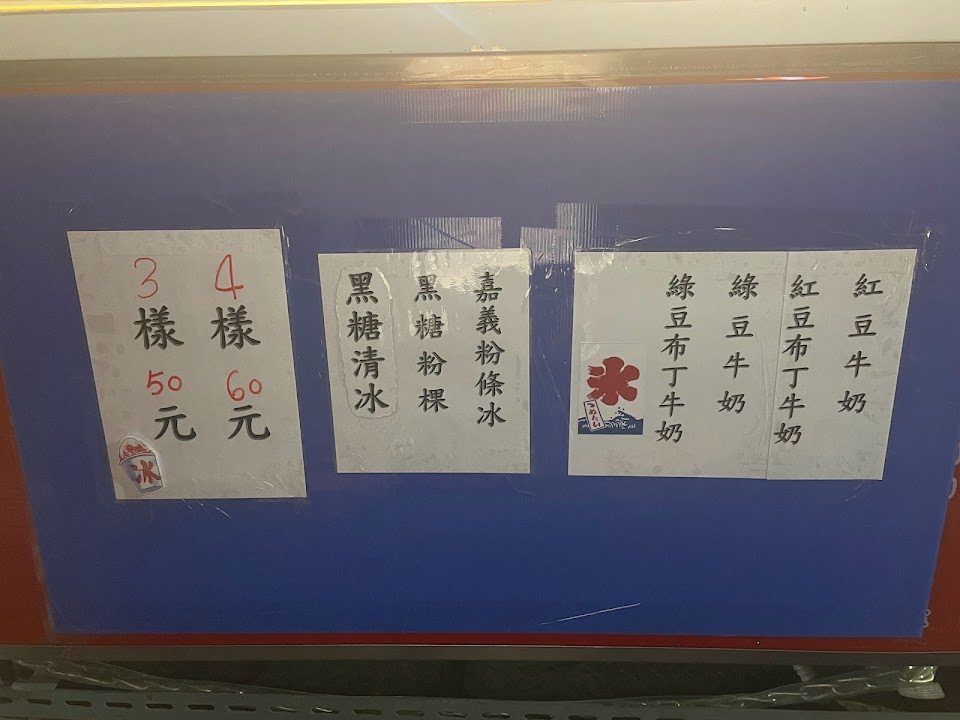 紅豆牛奶
紅豆布丁牛奶
綠豆牛奶
綠豆布丁牛奶
氷
つめたい
嘉義粉條冰
黑糖粉粿
黑糖清冰
4樣60元
3樣50元
冰